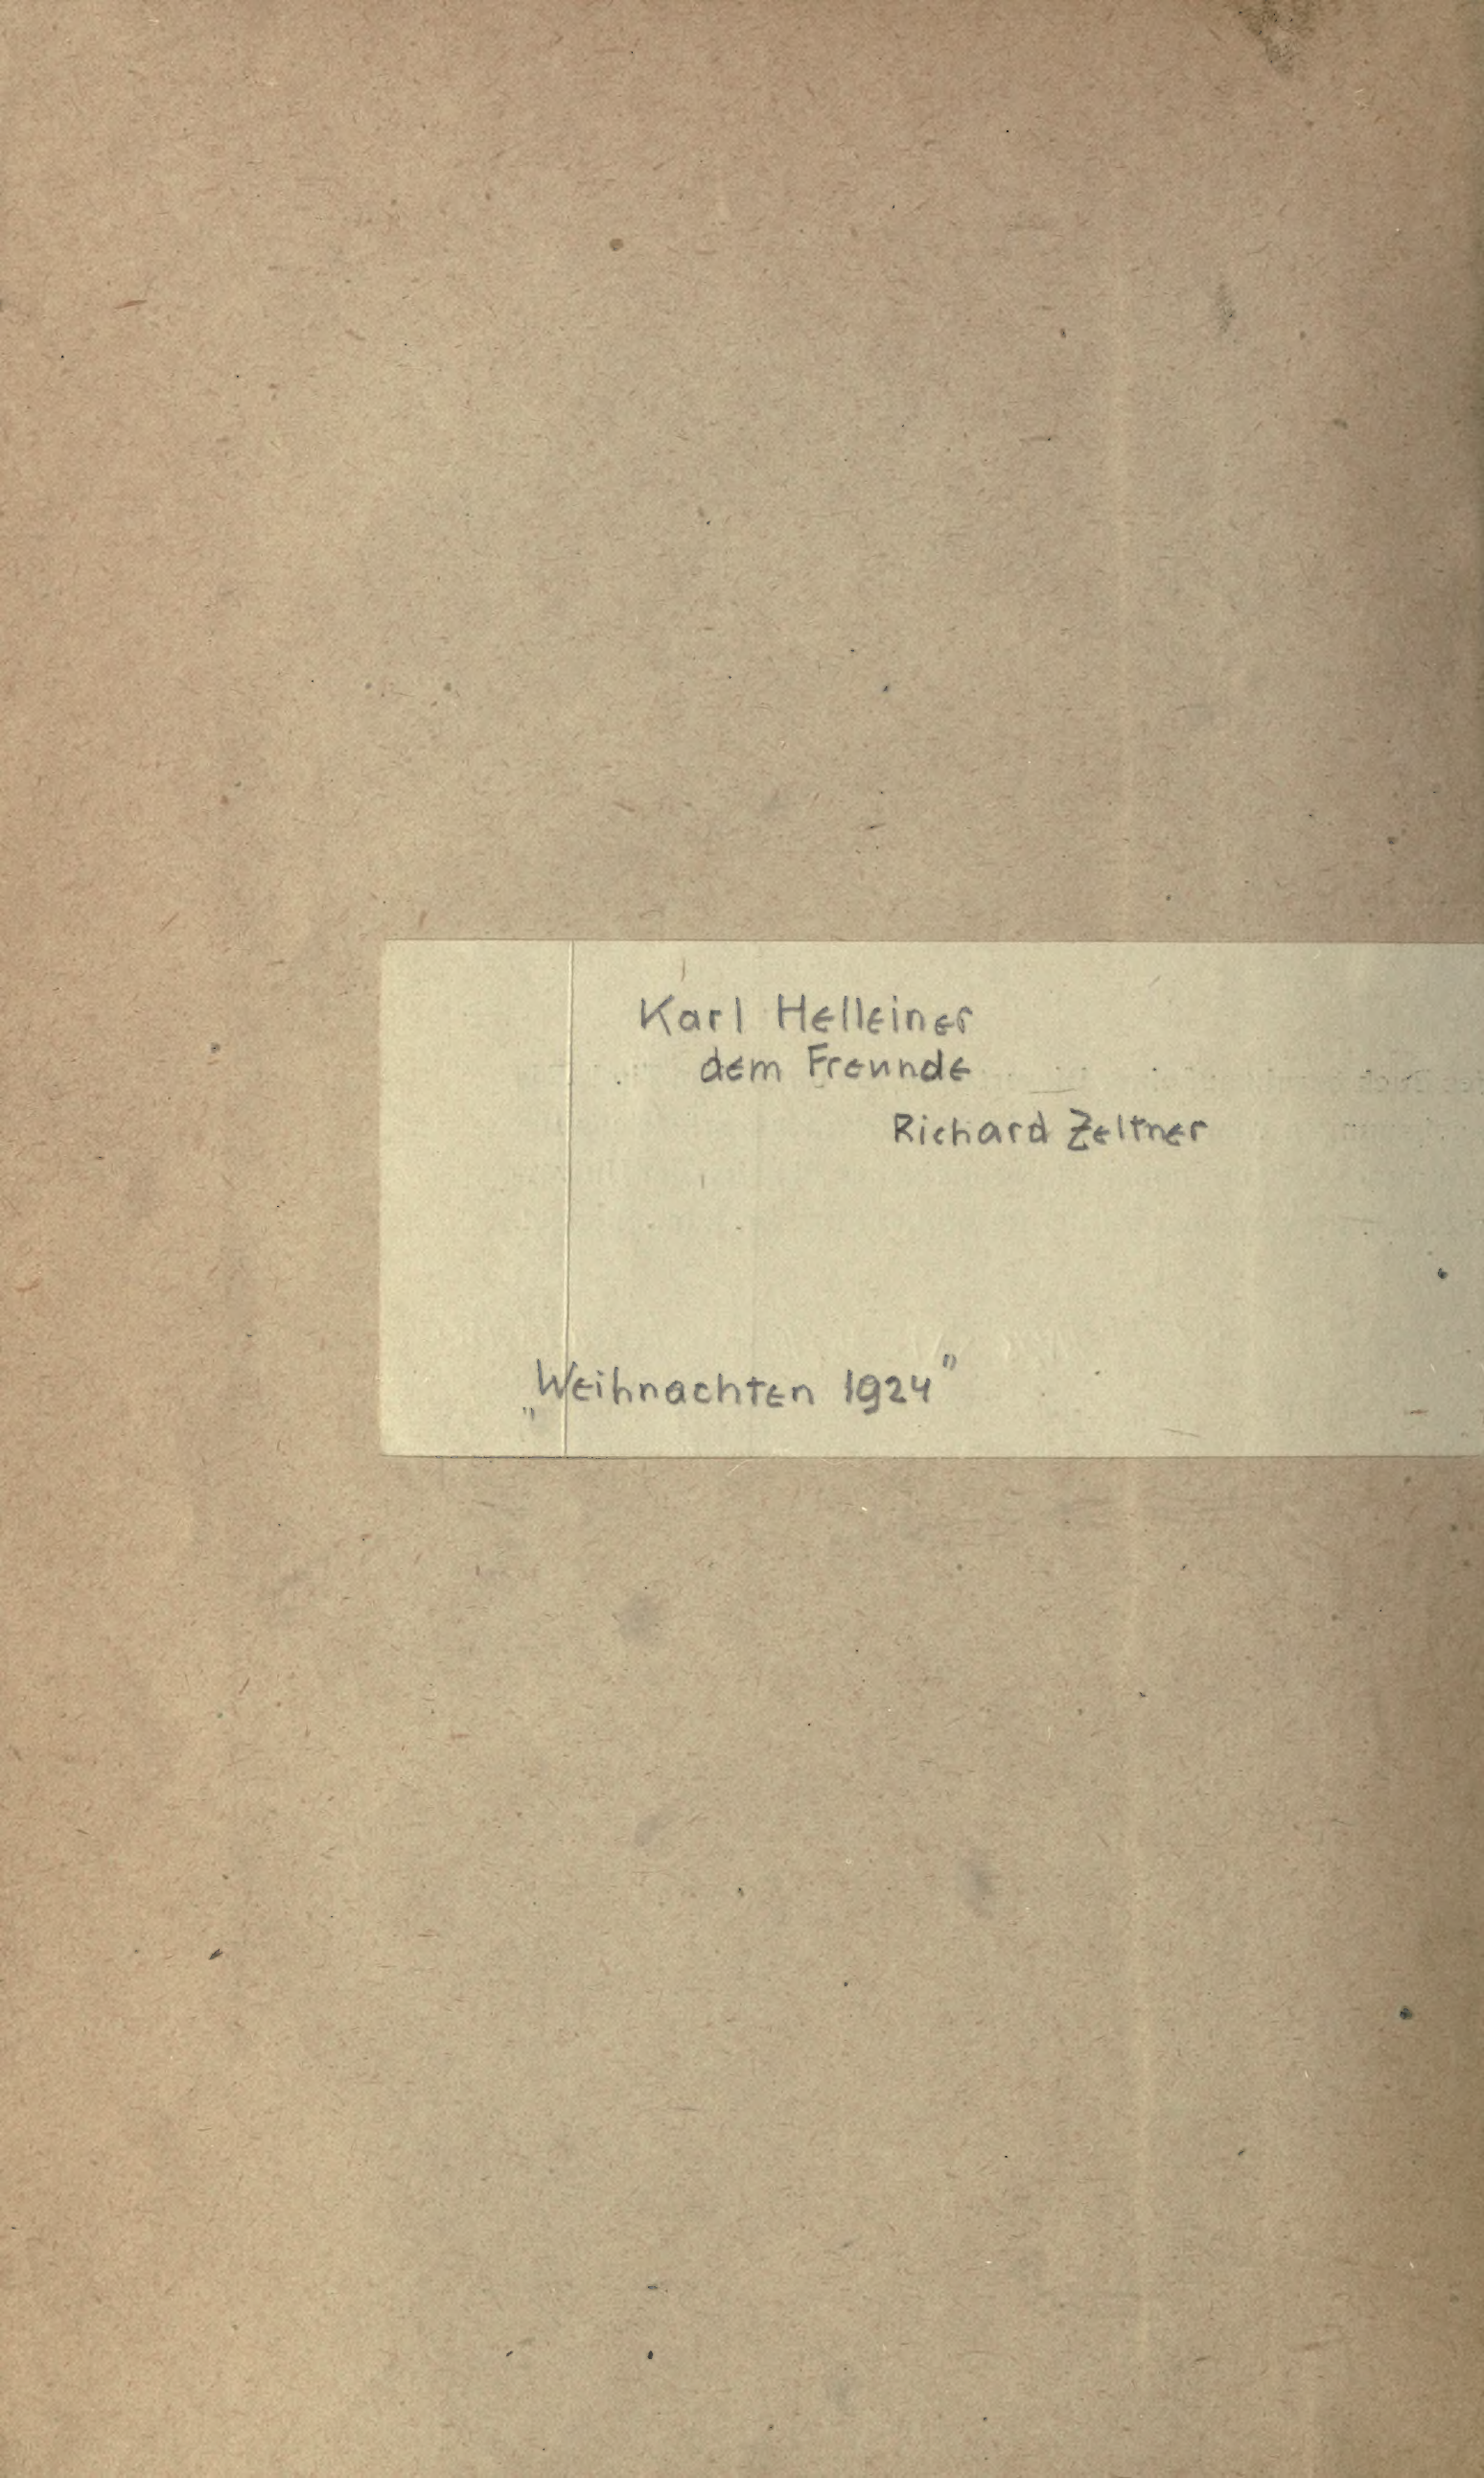 Karl Helleiner
dem Freunde
Richard Zeltner
„Weihnachten 1924"